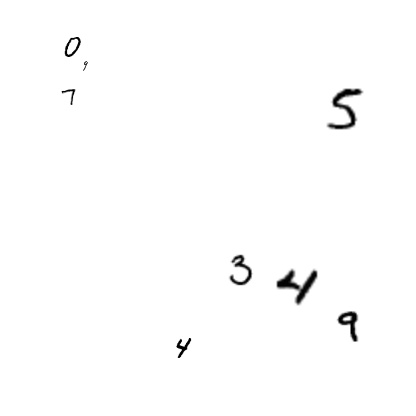 0
9
7
5
3 4
9
4